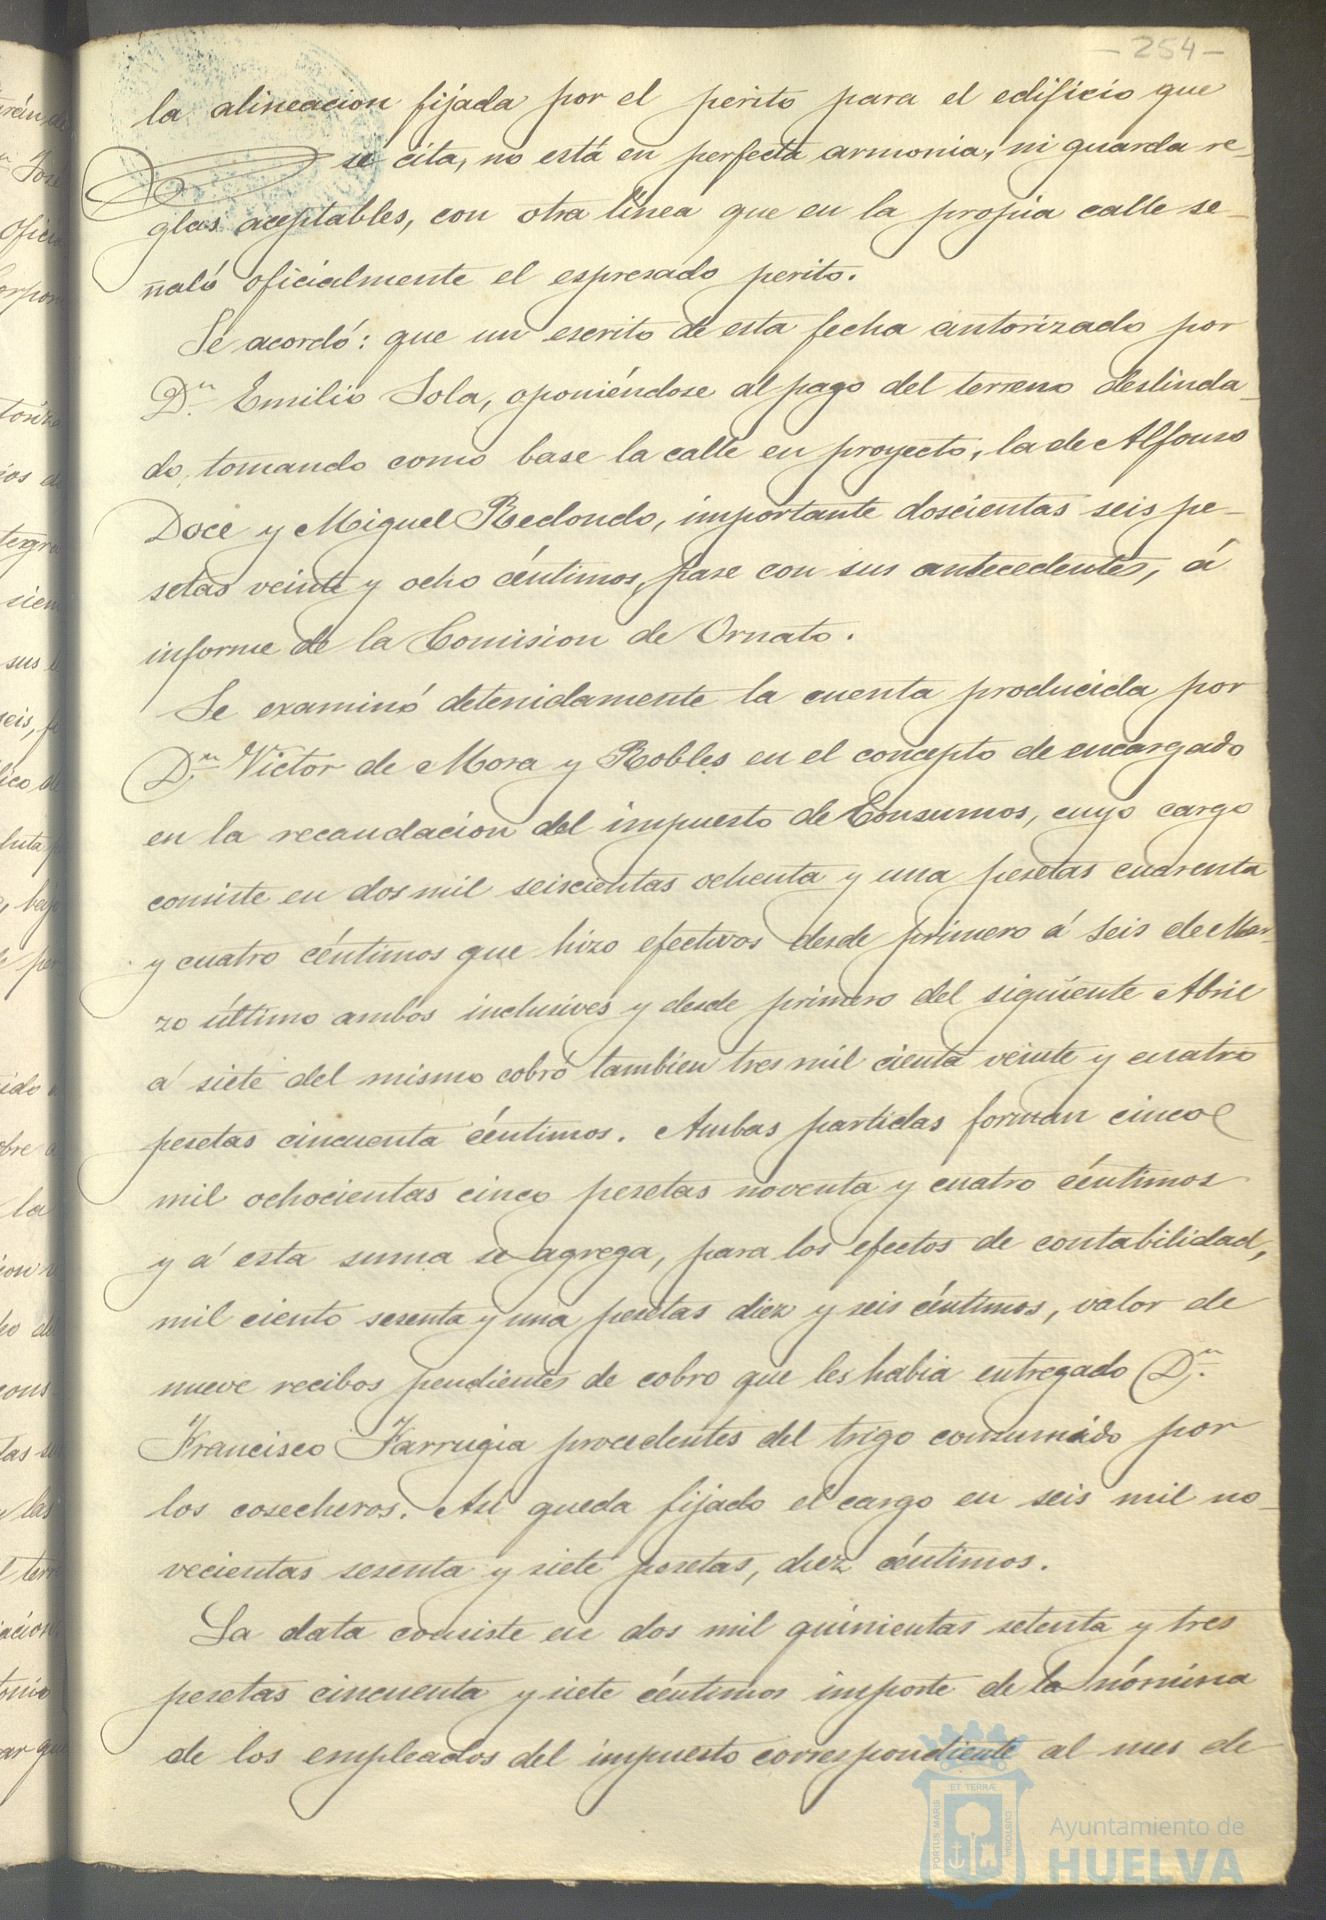 - 254 -
la alineacion fijada por el perito para el edificio que
se cita, no está en perfecta armonia, ni guarda re-
glas aceptables, con otra línea que en la propia calle se-
ñaló oficialmente el espresado perito.
Se acordó: que un escrito de esta fecha autorizado por
D.n Emilio Sola, oponiéndose al pago del terreno deslinda-
do, tomando como base la calle en proyecto, la de Alfonso
Doce y Miguel Redondo, importante doscientas seis pe-
setas veinte y ocho céntimos, pase con sus antecedentes, á
informe de la Comision de Ornato.
Se examinó detenidamente la cuenta producida por
D.n Victor de Mora y Robles en el concepto de encargado
en la recaudacion del impuesto de Consumos, cuyo cargo
consiste en dos mil seiscientas ochenta y una pesetas cuarenta
y cuatro céntimos que hizo efectivos desde primero á seis de Mar-
zo último ambos inclusives y desde primero del siguiente Abril
á siete del mismo cobró tambien tres mil cienta veinte y cuatro
pesetas cincuenta céntimos. Ambas partidas forman cinco
mil ochocientas cinco pesetas noventa y cuatro céntimos
y á esta suma se agrega, para los efectos de contabilidad,
mil ciento sesenta y una pesetas diez y seis céntimos, valor de
nueve recibos pendientes de cobro que les habia entregado D.n
Francisco Farrugia procedentes del trigo consumido por
los cosecheros. Asi queda fijado el cargo en seis mil no-
vecientas sesenta y siete pesetas, diez céntimos.
La data consiste en dos mil quinientas setenta y tres
pesetas cincuenta y siete céntimos importe de la nómina
de los empleados del impuesto correspondiente al mes de
PORTUS MARIS
ET TERRÆ
CUSTODIA
Ayuntamiento de
HUELVA